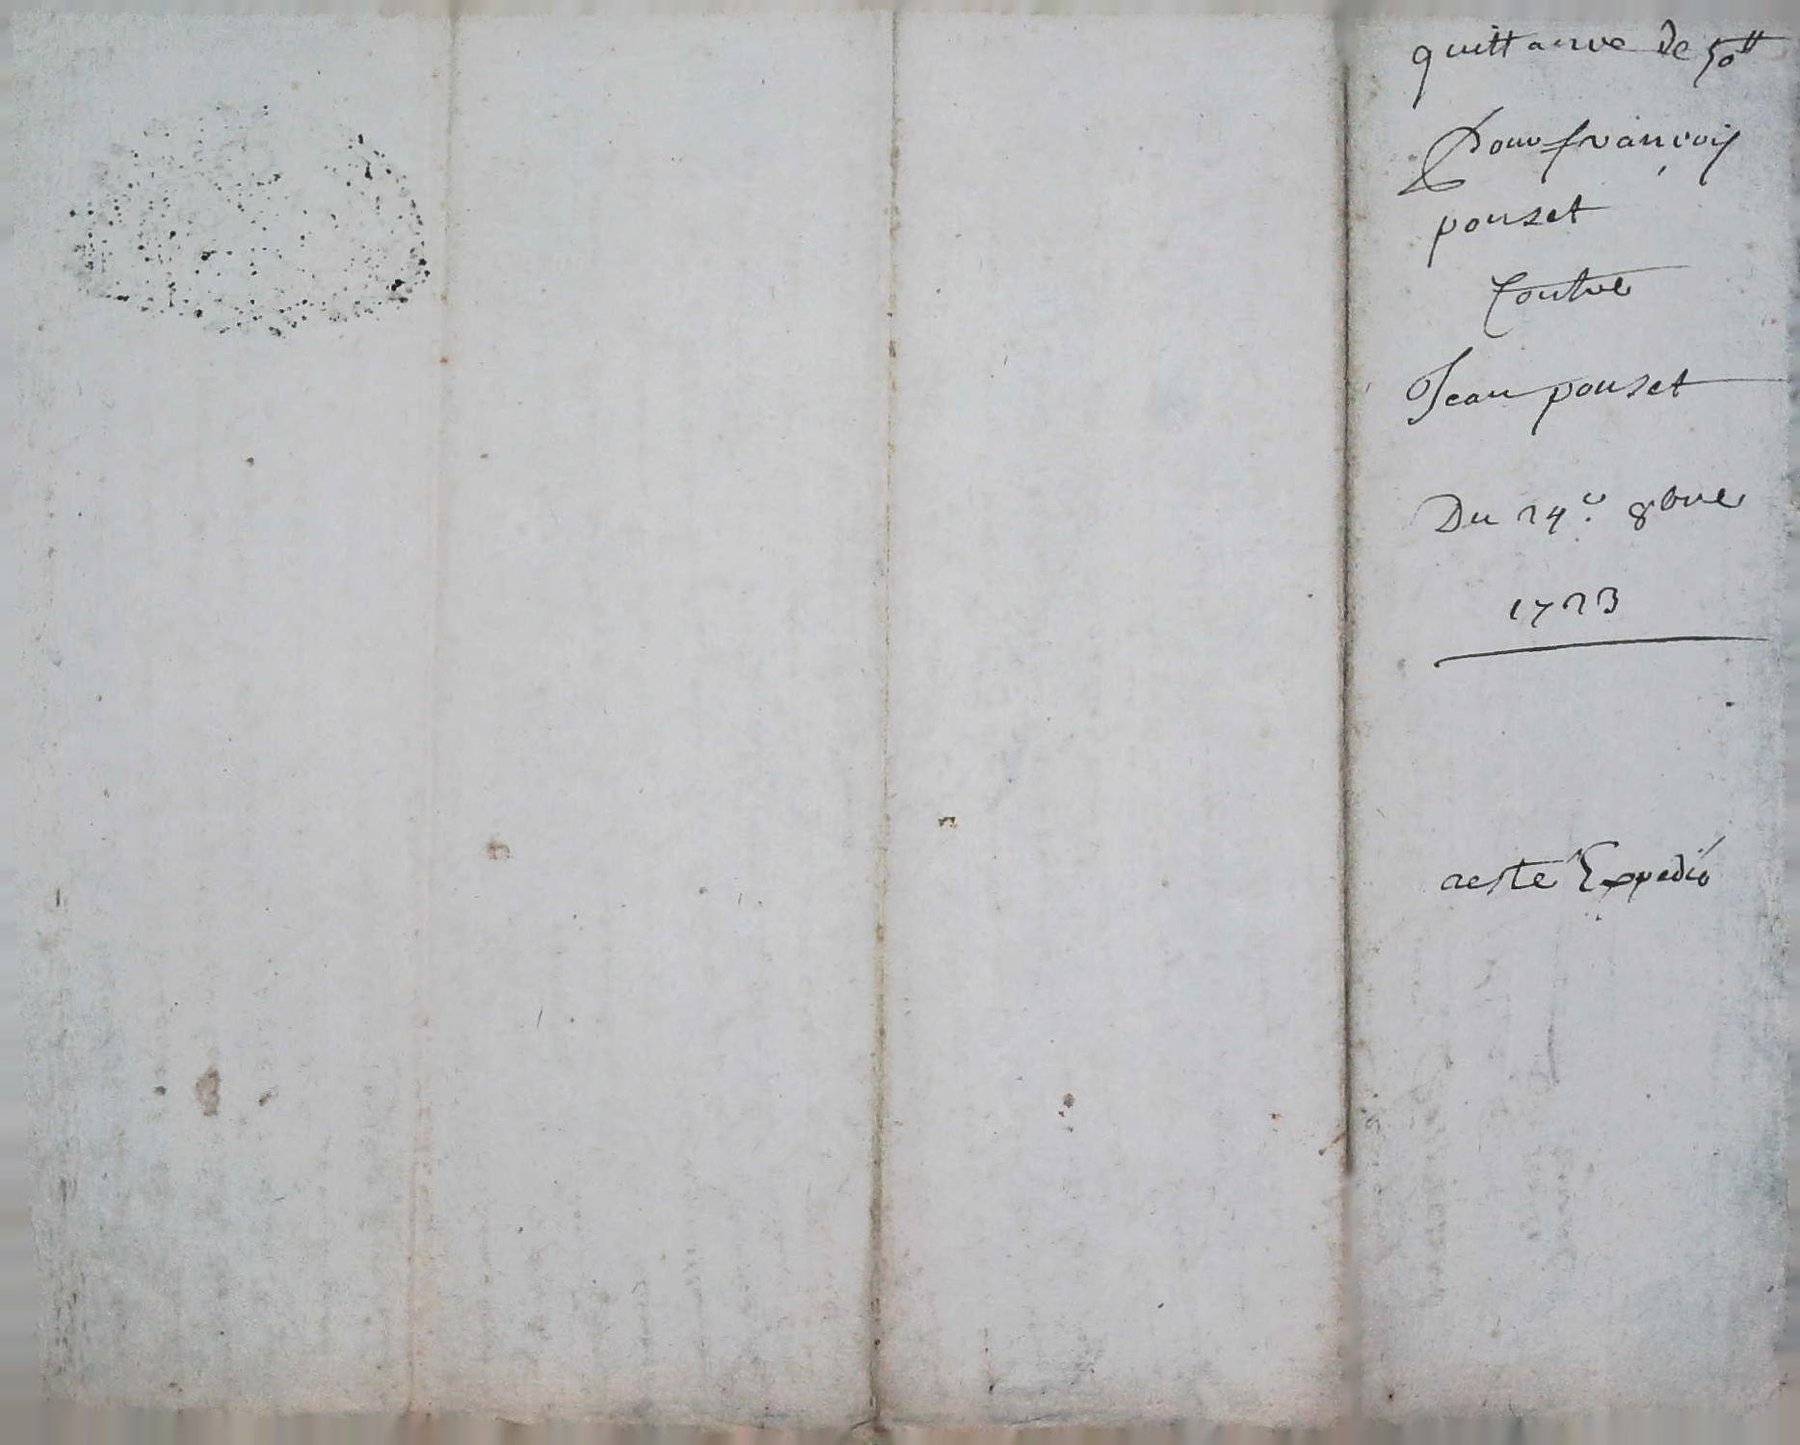 quittance de 50tt
Pour françois
pouzet
Contre
Jean pouzet
Du 24e. 8bre
1723
reste Expedié